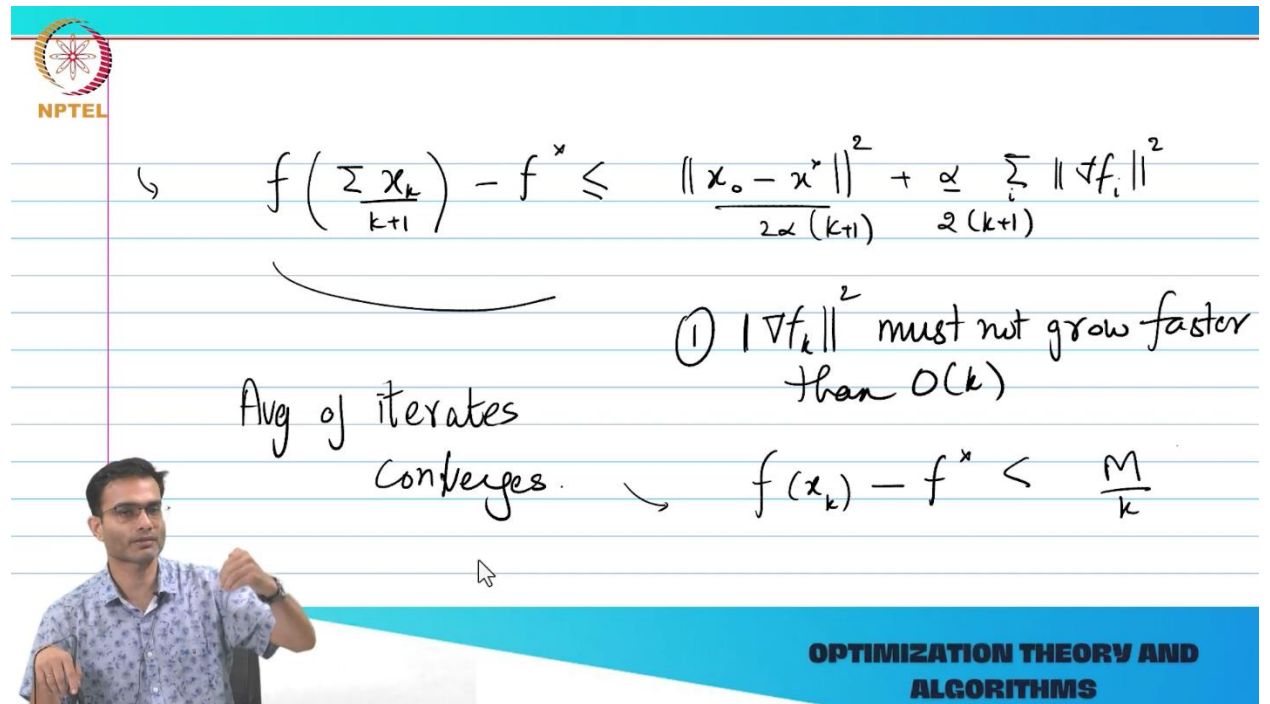 NPTEL
↳ f ( Σ x_k / k+1 ) − f* ≤ ||x_0 − x*||² / 2α(k+1) + α / 2(k+1) Σ_i ||∇f_i||²
① |∇f_k||² must not grow faster
than O(k)
Avg of iterates
converges. ↘ f(x_k) − f* < M / k
OPTIMIZATION THEORY AND
ALGORITHMS